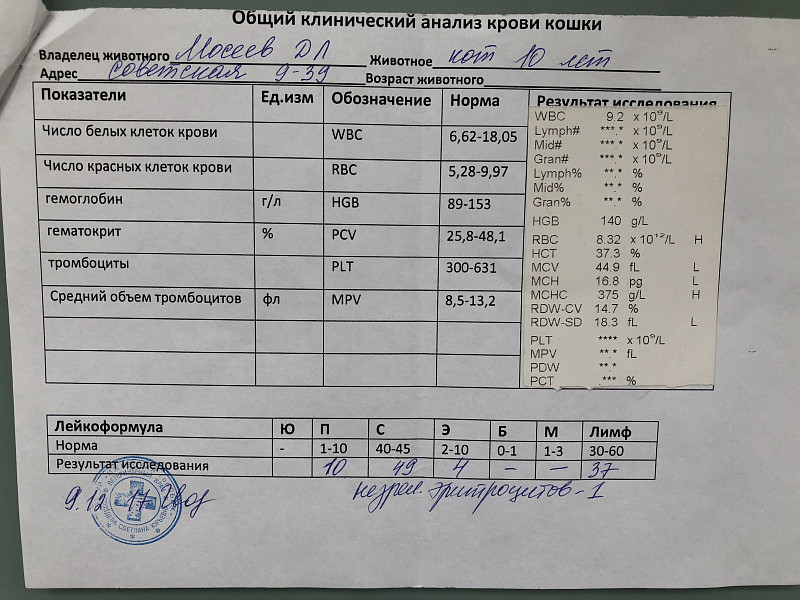 Общий клинический анализ крови кошки
Владелец животного Мосеев Д Л Животное кот 10 лет
Адрес советская 9-39 Возраст животного
Показатели Ед.изм Обозначение Норма Результат исследования
Число белых клеток крови WBC 6,62-18,05
Число красных клеток крови RBC 5,28-9,97
гемоглобин г/л HGB 89-153
гематокрит % PCV 25,8-48,1
тромбоциты PLT 300-631
Средний объем тромбоцитов фл MPV 8,5-13,2
WBC 9.2 x 10⁹/L
Lymph# ***.* x 10⁹/L
Mid# ***.* x 10⁹/L
Gran# ***.* x 10⁹/L
Lymph% **.* %
Mid% **.* %
Gran% **.* %
HGB 140 g/L
RBC 8.32 x 10¹²/L H
HCT 37.3 %
MCV 44.9 fL L
MCH 16.8 pg L
MCHC 375 g/L H
RDW-CV 14.7 %
RDW-SD 18.3 fL L
PLT **** x 10⁹/L
MPV **.* fL
PDW **.*
PCT .*** %
Лейкоформула Ю П С Э Б М Лимф
Норма - 1-10 40-45 2-10 0-1 1-3 30-60
Результат исследования 10 49 4 – – 37
9.12 17
незрел. эритроцитов - 1
СВЕТЛАНА